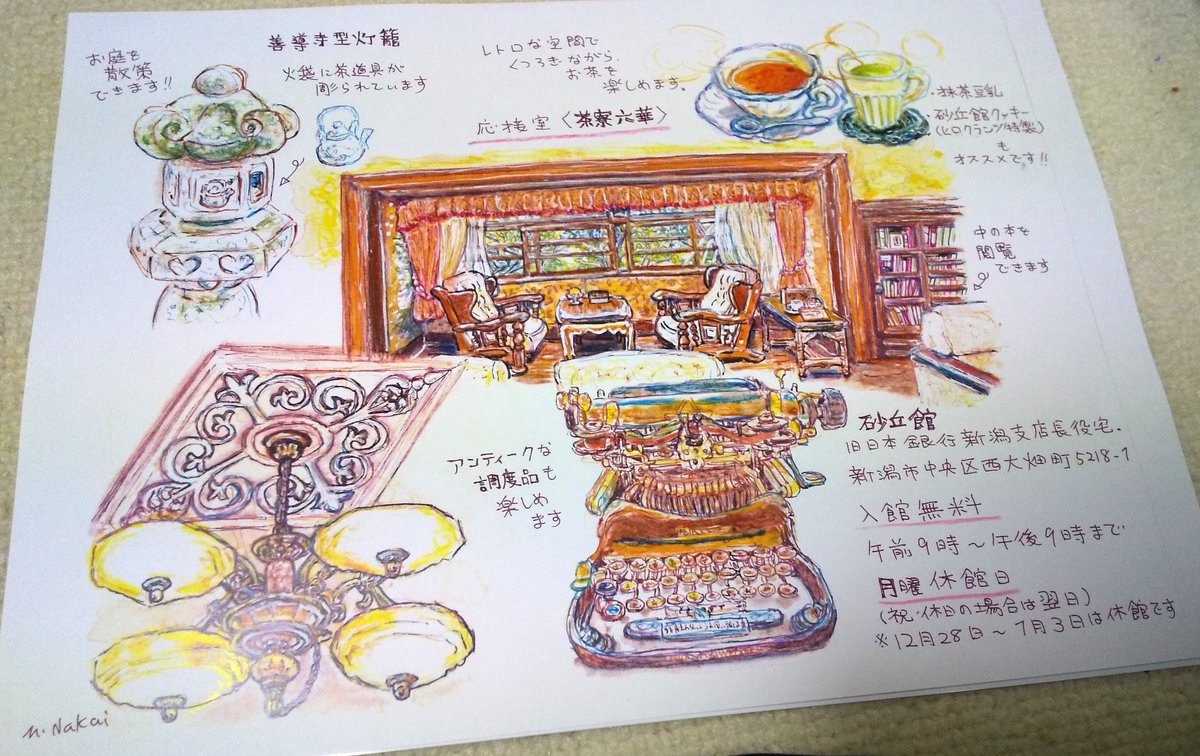 お庭を
散策
できます!!
善導寺型灯籠
火袋に茶道具が
彫られています
レトロな空間で
くつろぎながら、
お茶を
楽しめます。
応接室〈茶寮六華〉
・抹茶豆乳
・砂丘館クッキー
(ヒロクランツ特製)
も
オススメです!!
中の本を
閲覧
できます
アンティークな
調度品も
楽しめ
ます
砂丘館
旧日本銀行新潟支店長役宅.
新潟市中央区西大畑町5218-1
入館無料
午前9時～午後9時まで
月曜休館日
(祝・休日の場合は翌日)
※12月28日～1月3日は休館です
N. Nakai